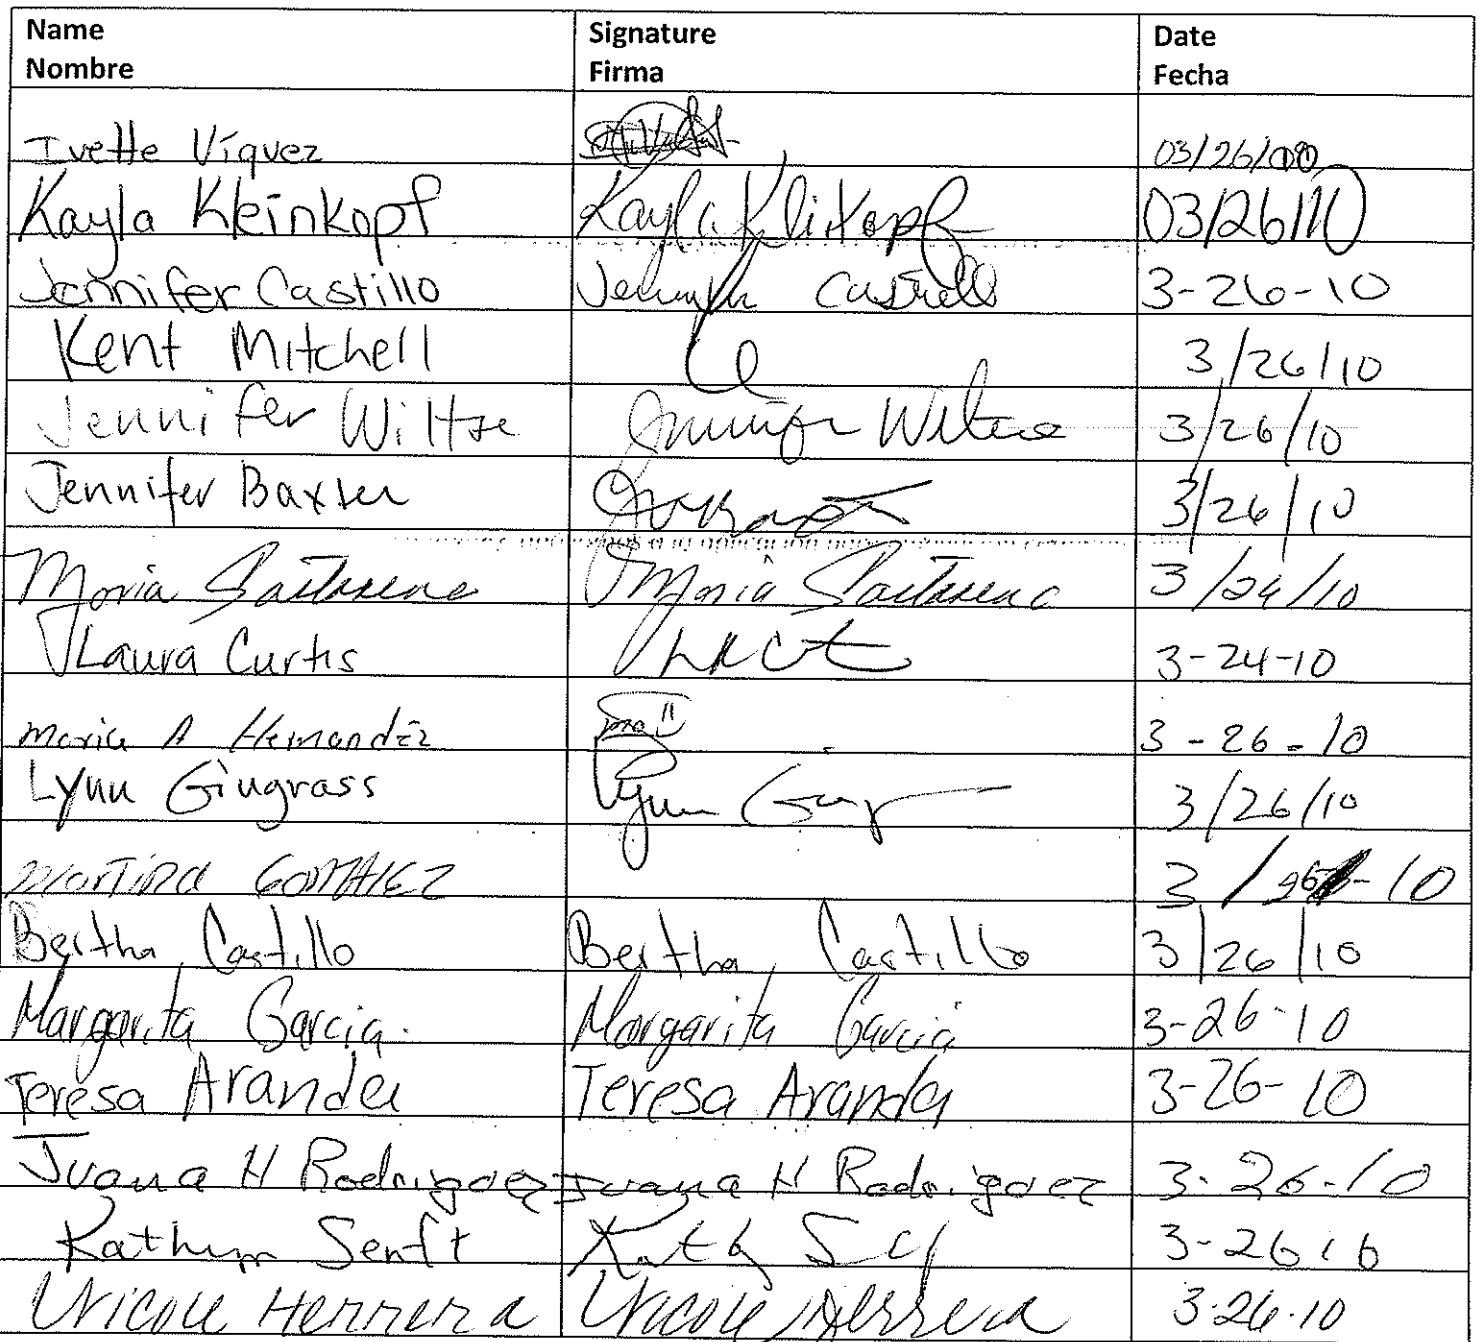 Name Signature Date
Nombre Firma Fecha
Ivette Víquez 03/26/10
Kayla Kleinkopf Kayla Kleinkopf 03/26/10
Jennifer Castillo Jennifer Castillo 3-26-10
Kent Mitchell 3/26/10
Jennifer Wiltse Jennifer Wiltse 3/26/10
Jennifer Baxter 3/26/10
Maria Maria 3/24/10
Laura Curtis 3-24-10
Maria A Hernandez 3-26-10
Lynn Gingrass Lynn 3/26/10
Martina Gonzalez 3/26-10
Bertha Castillo Bertha Castillo 3/26/10
Margarita Garcia Margarita Garcia 3-26-10
Teresa Aranda Teresa Aranda 3-26-10
Juana H Rodriguez Juana H Rodriguez 3-26-10
Kathryn Senft 3-26-10
Nicole Herrera Nicole Herrera 3-26-10